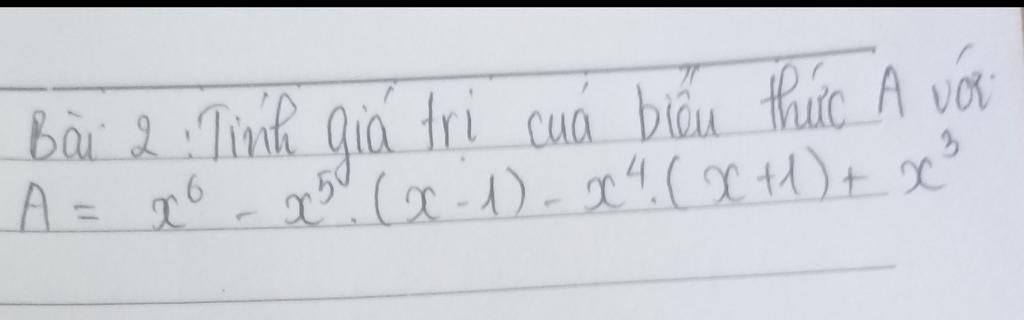 Bài 2: Tính giá trị cuả biểu thức A với
A = x⁶ - x⁵.(x - 1) - x⁴.(x + 1) + x³